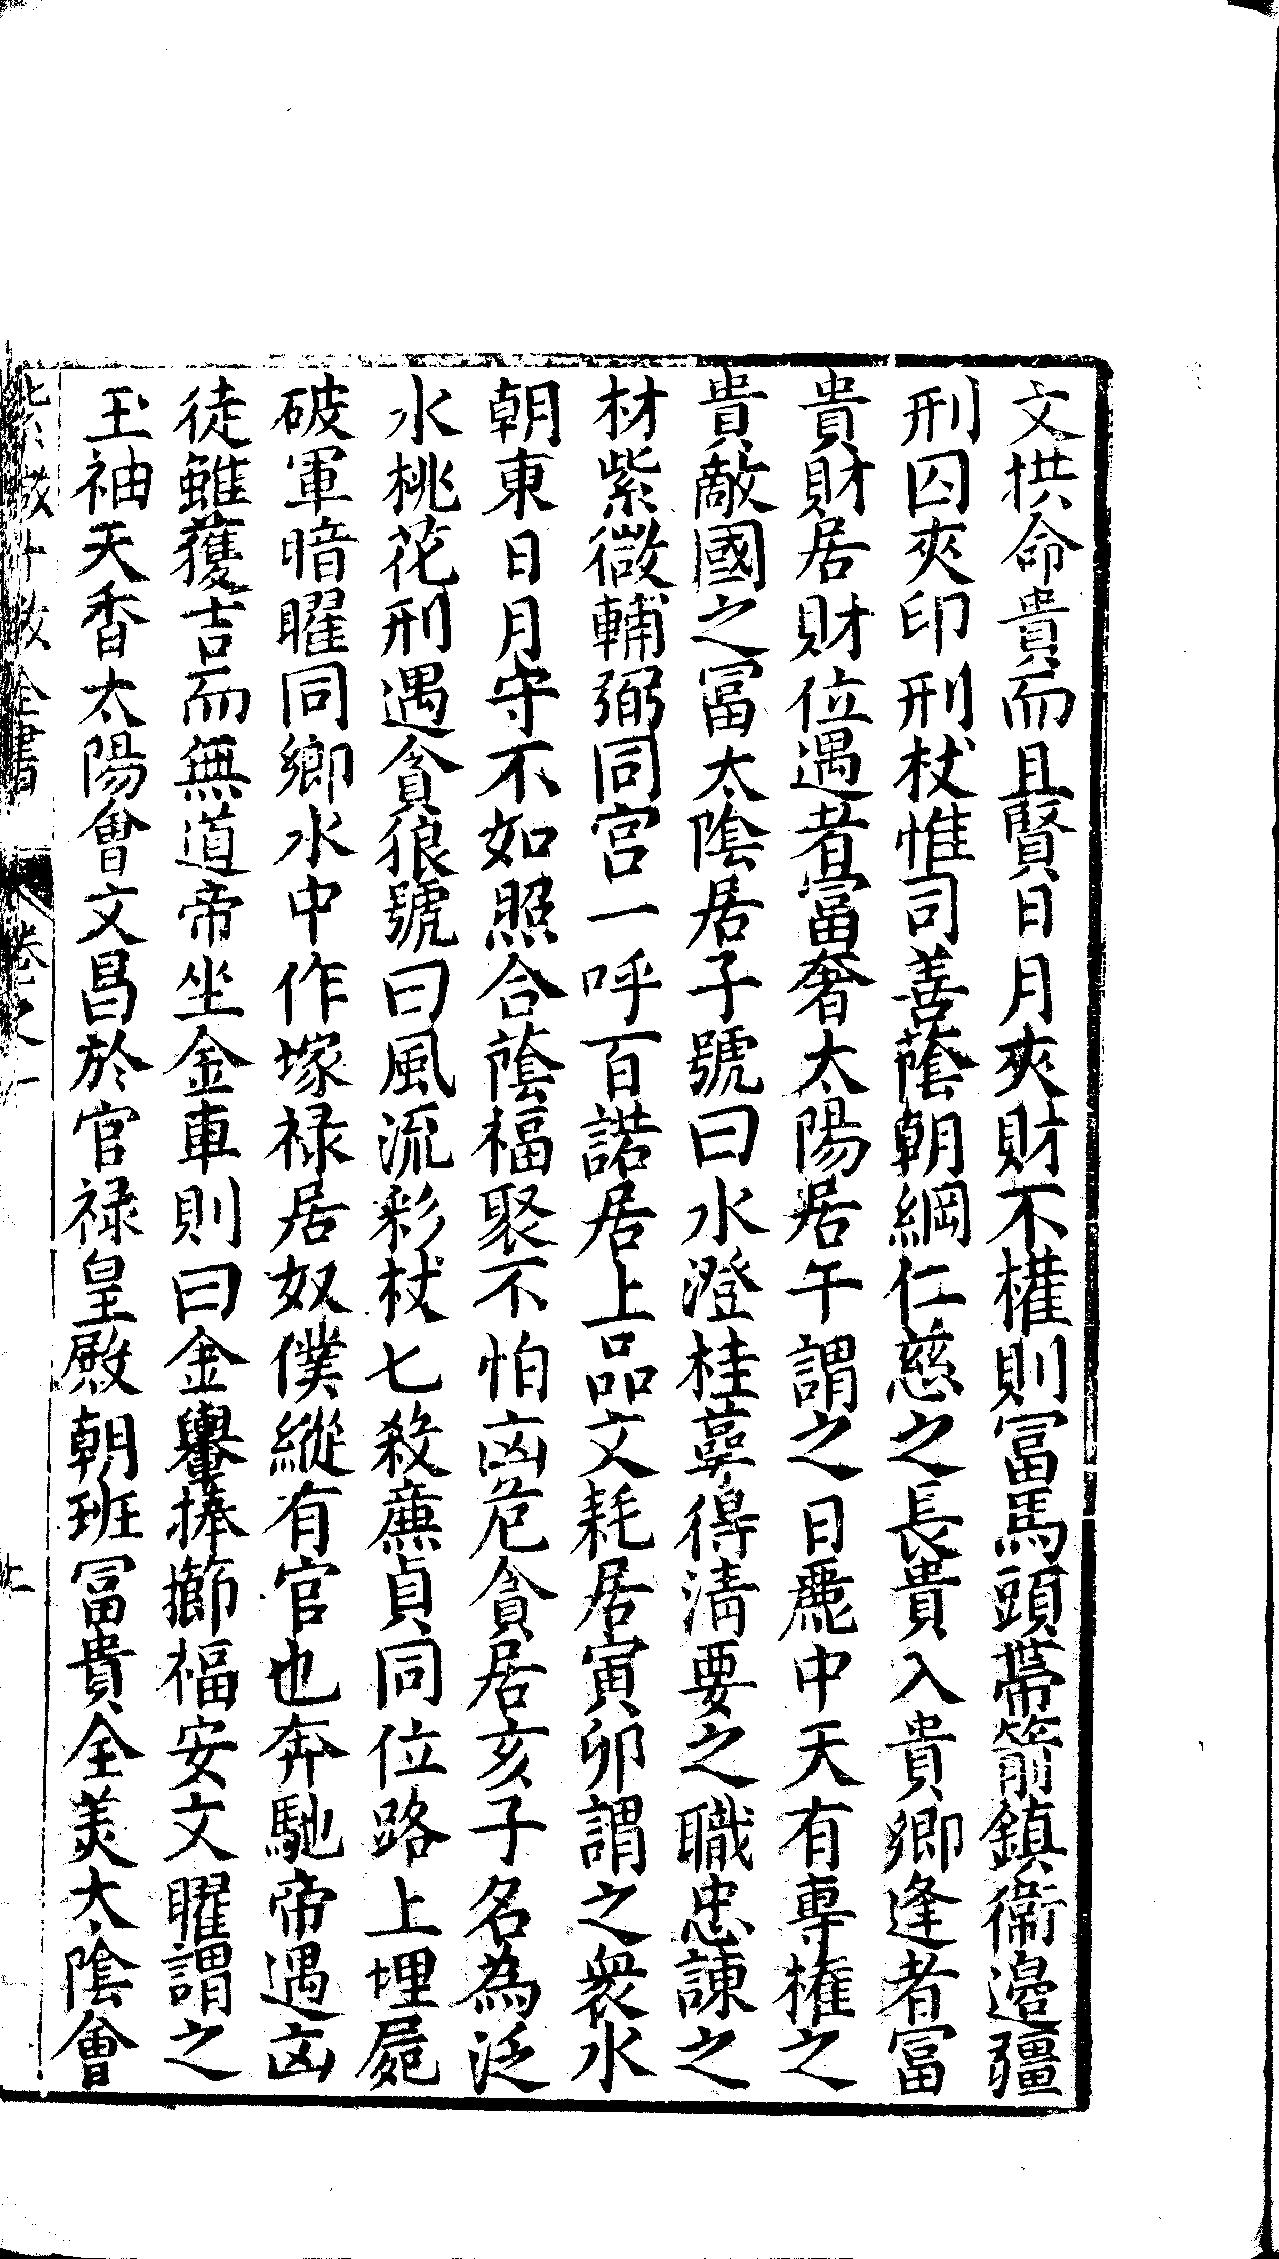 文拱命貴而且賢日月夾財不權則冨馬頭帶箭鎮衛邉疆
刑囚夾印刑杖惟司善蔭朝綱仁慈之長貴入貴卿逢者富
貴財居財位遇者富奢太陽居午謂之日麗中天有專權之
貴敵國之冨太陰居子號曰水澄桂蕚得清要之職忠諫之
材紫微輔弼同宫一呼百諾居上品文耗居寅卯謂之衆水
朝東日月守不如照合蔭福聚不怕凶危貪居亥子名為泛
水桃花刑遇貪狼號曰風流彩杖七殺廉貞同位路上埋屍
破軍暗曜同鄉水中作塚禄居奴僕縱有官也奔馳帝遇凶
徒雖獲吉而無道帝坐金車則曰金轝捧櫛福安文曜謂之
玉袖天香太陽會文昌於官禄皇殿朝班冨貴全美太陰會
全書 卷之一